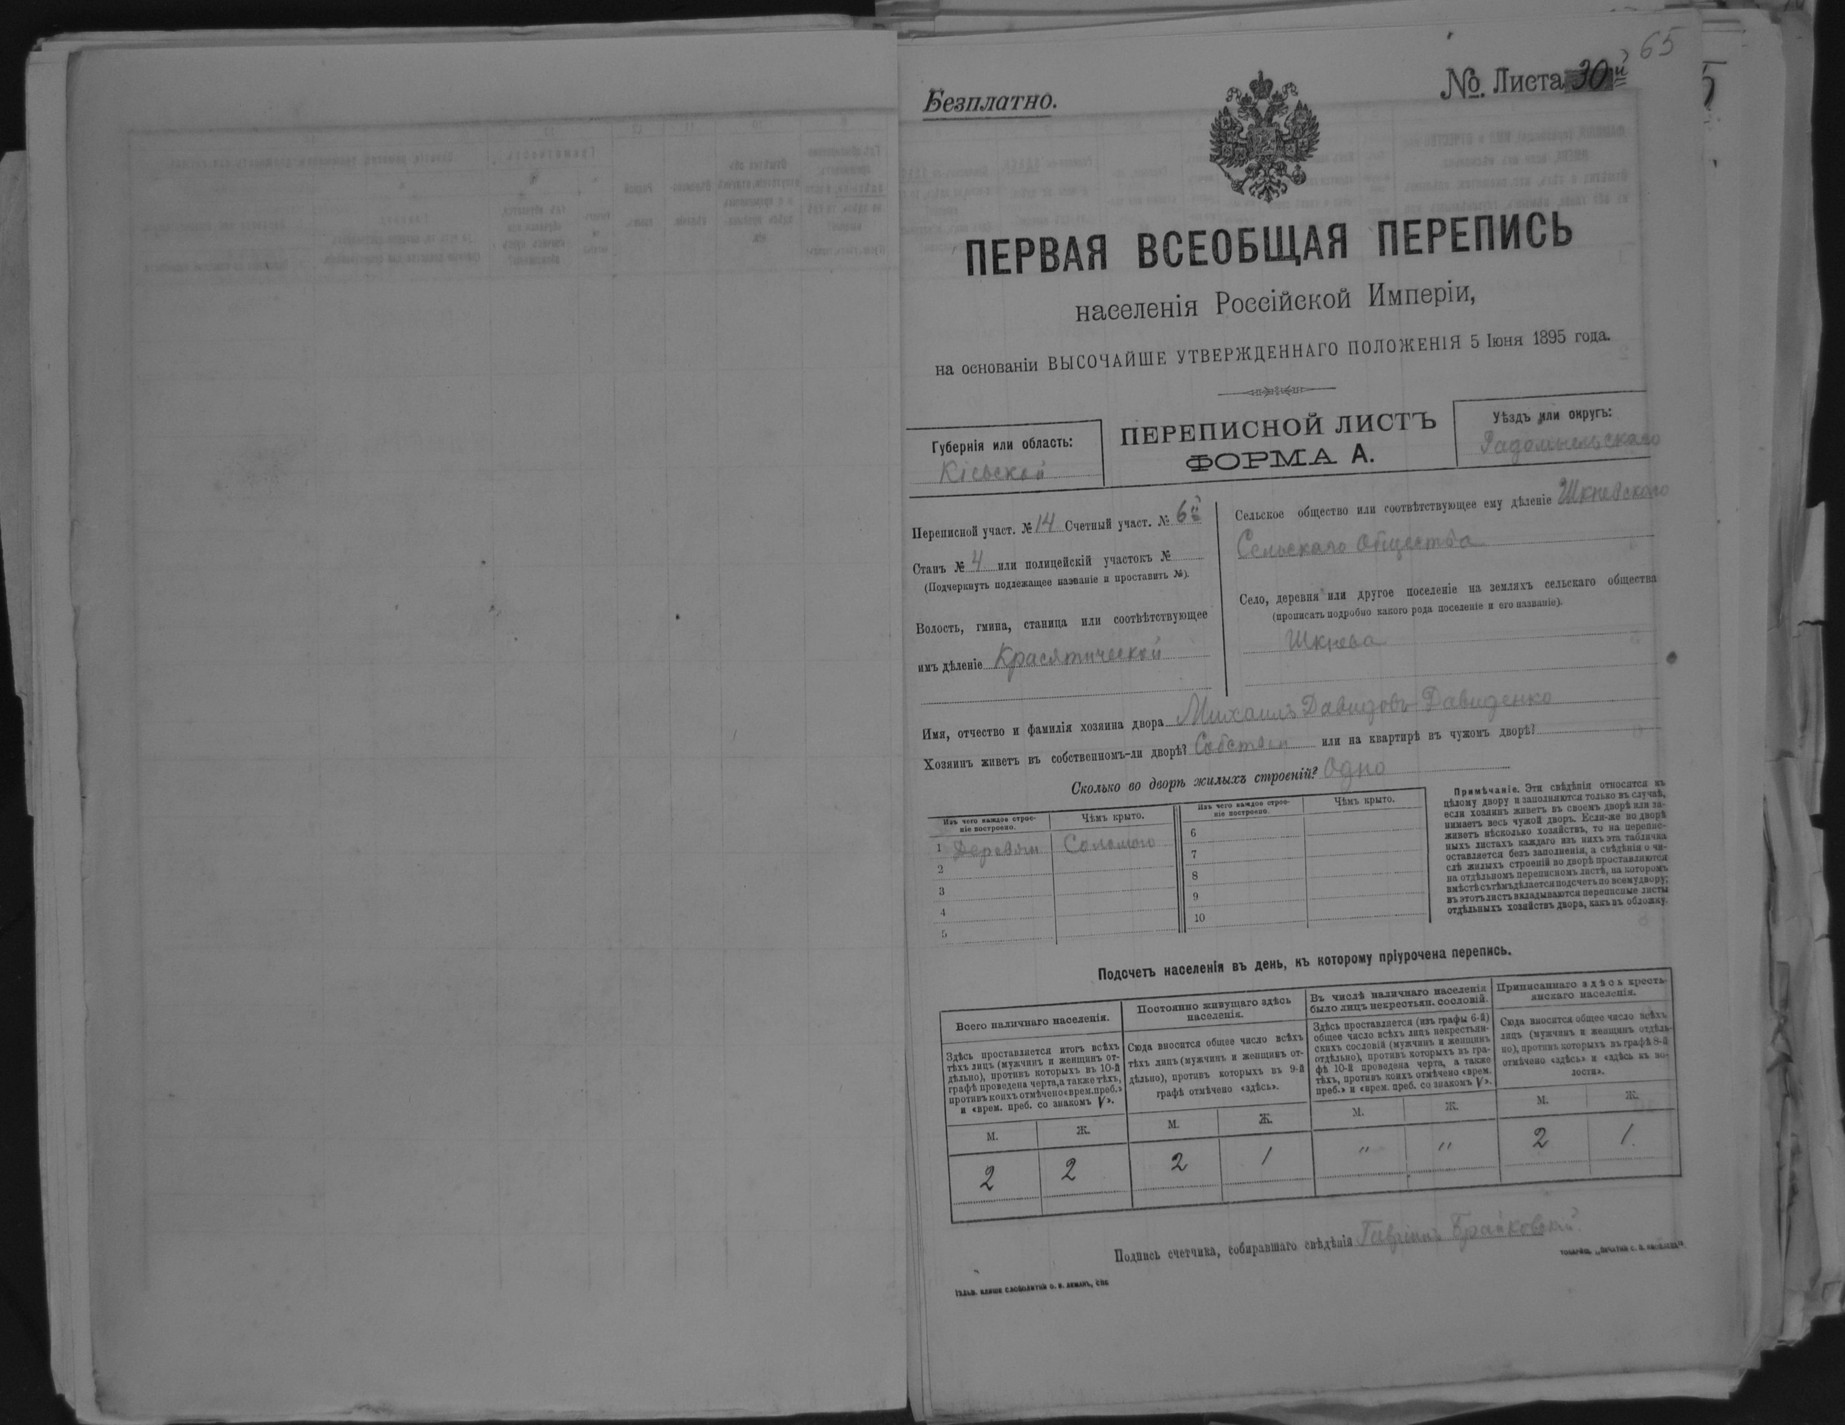 65
Безплатно.
№. Листа 30й
ПЕРВАЯ ВСЕОБЩАЯ ПЕРЕПИСЬ
населенія Россійской Имперіи,
на основаніи ВЫСОЧАЙШЕ УТВЕРЖДЕННАГО ПОЛОЖЕНІЯ 5 Іюня 1895 года.
Губернія или область:
Кіевской
ПЕРЕПИСНОЙ ЛИСТЪ
ФОРМА А.
Уѣздъ или округъ:
Радомысльскаго
Переписной участ. № 14 Счетный участ. № 6й
Станъ № 4 или полицейскій участокъ №
(Подчеркнуть подлежащее названіе и проставить №).
Волость, гмина, станица или соотвѣтствующее
имъ дѣленіе Красятической
Сельское общество или соотвѣтствующее ему дѣленіе Шкневского
Сельскаго Общества
Село, деревня или другое поселеніе на земляхъ сельскаго общества
(прописать подробно какого рода поселеніе и его названіе).
Шкнева
Имя, отчество и фамилія хозяина двора Михаилъ Давидовъ Давиденко
Хозяинъ живетъ въ собственномъ-ли дворѣ? Собствен или на квартирѣ въ чужомъ дворѣ?
Сколько во дворѣ жилыхъ строеній? Одно
Изъ чего каждое строе-
ніе построено.
Чѣмъ крыто.
Изъ чего каждое строе-
ніе построено.
Чѣмъ крыто.
1 Деревян Соломою
2
3
4
5
6
7
8
9
10
Примѣчаніе. Эти свѣдѣнія относятся къ
цѣлому двору и заполняются только въ случаѣ,
если хозяинъ живетъ въ своемъ дворѣ или за-
нимаетъ весь чужой дворъ. Если-же во дворѣ
живетъ нѣсколько хозяйствъ, то на перепис-
ныхъ листахъ каждаго изъ нихъ эта табличка
оставляется безъ заполненія, а свѣдѣнія о чи-
слѣ жилыхъ строеній во дворѣ проставляются
на отдѣльномъ переписномъ листѣ, на которомъ
вмѣстѣ съ тѣмъ дѣлается подсчетъ по всему двору;
въ этотъ листъ вкладываются переписные листы
отдѣльныхъ хозяйствъ двора, какъ въ обложку.
Подсчетъ населенія въ день, къ которому пріурочена перепись.
Всего наличнаго населенія.
Здѣсь проставляется итогъ всѣхъ
тѣхъ лицъ (мужчинъ и женщинъ от-
дѣльно), противъ которыхъ въ 10-й
графѣ проведена черта, а также тѣхъ,
противъ коихъ отмѣчено «врем. преб.»
и «врем. преб. со знакомъ V».
М. Ж.
2 2
Постоянно живущаго здѣсь
населенія.
Сюда вносится общее число всѣхъ
тѣхъ лицъ (мужчинъ и женщинъ от-
дѣльно), противъ которыхъ въ 9-й
графѣ отмѣчено «здѣсь».
М. Ж.
2 1
Въ числѣ наличнаго населенія
было лицъ некрестьян. сословій.
Здѣсь проставляется (изъ графы 6-й)
общее число всѣхъ лицъ некрестьян-
скихъ сословій (мужчинъ и женщинъ
отдѣльно), противъ которыхъ въ гра-
фѣ 10-й проведена черта, а также
тѣхъ, противъ коихъ отмѣчено «врем.
преб.» и «врем. преб. со знакомъ V».
М. Ж.
" "
Приписаннаго здѣсь кресть-
янскаго населенія.
Сюда вносится общее число всѣхъ
лицъ (мужчинъ и женщинъ отдѣль-
но), противъ которыхъ въ графѣ 8-й
отмѣчено «здѣсь» и «здѣсь въ во-
лости».
М. Ж.
2 1.
Подпись счетчика, собиравшаго свѣдѣнія Гавріилъ Брайковскій